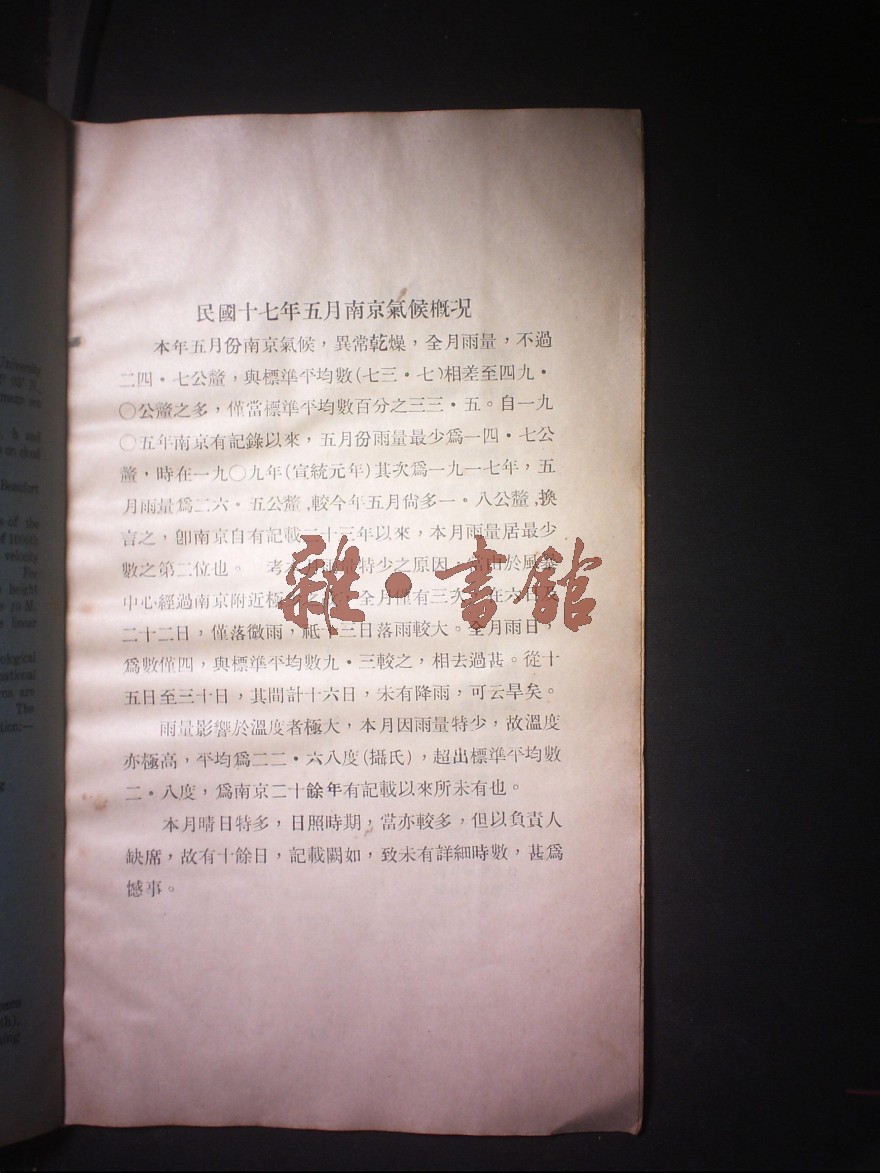 民國十七年五月南京氣候概况
本年五月份南京氣候，異常乾燥，全月雨量，不過
二四·七公釐，與標準平均數(七三·七)相差至四九·
〇公釐之多，僅當標準平均數百分之三三·五。自一九
〇五年南京有記錄以來，五月份雨量最少爲一四·七公
釐，時在一九〇九年(宣統元年)其次爲一九一七年，五
月雨量爲二六·五公釐，較今年五月尙多一·八公釐，換
言之，卽南京自有記載二十三年以來，本月雨量居最少
數之第二位也。 考本月雨量特少之原因，當由於風暴
中心經過南京附近極少之故，全月僅有三次，在六日及
二十二日，僅落微雨，祗十三日落雨較大。全月雨日，
爲數僅四，與標準平均數九·三較之，相去過甚。從十
五日至三十日，其間計十六日，未有降雨，可云旱矣。
雨量影響於溫度者極大，本月因雨量特少，故溫度
亦極高，平均爲二二·六八度(攝氏)，超出標準平均數
二·八度，爲南京二十餘年有記載以來所未有也。
本月晴日特多，日照時期，當亦較多，但以負責人
缺席，故有十餘日，記載闕如，致未有詳細時數，甚爲
憾事。
雜·書館
University
ments are
h and
on cloud
Beaufort
s of the
of 1000th
velocity
For
height
10 M.
linear
ological
national
ns are
The
tion:—